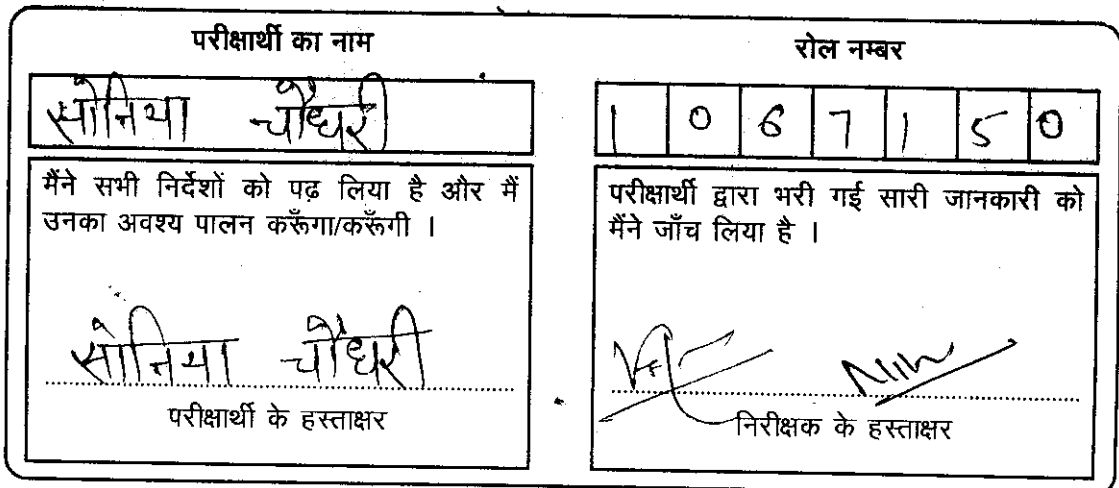 परीक्षार्थी का नाम
सोनिया चौधरी
मैंने सभी निर्देशों को पढ़ लिया है और मैं
उनका अवश्य पालन करूँगा/करूँगी ।
सोनिया चौधरी
परीक्षार्थी के हस्ताक्षर
रोल नम्बर
1 0 6 7 1 5 0
परीक्षार्थी द्वारा भरी गई सारी जानकारी को
मैंने जाँच लिया है ।
निरीक्षक के हस्ताक्षर